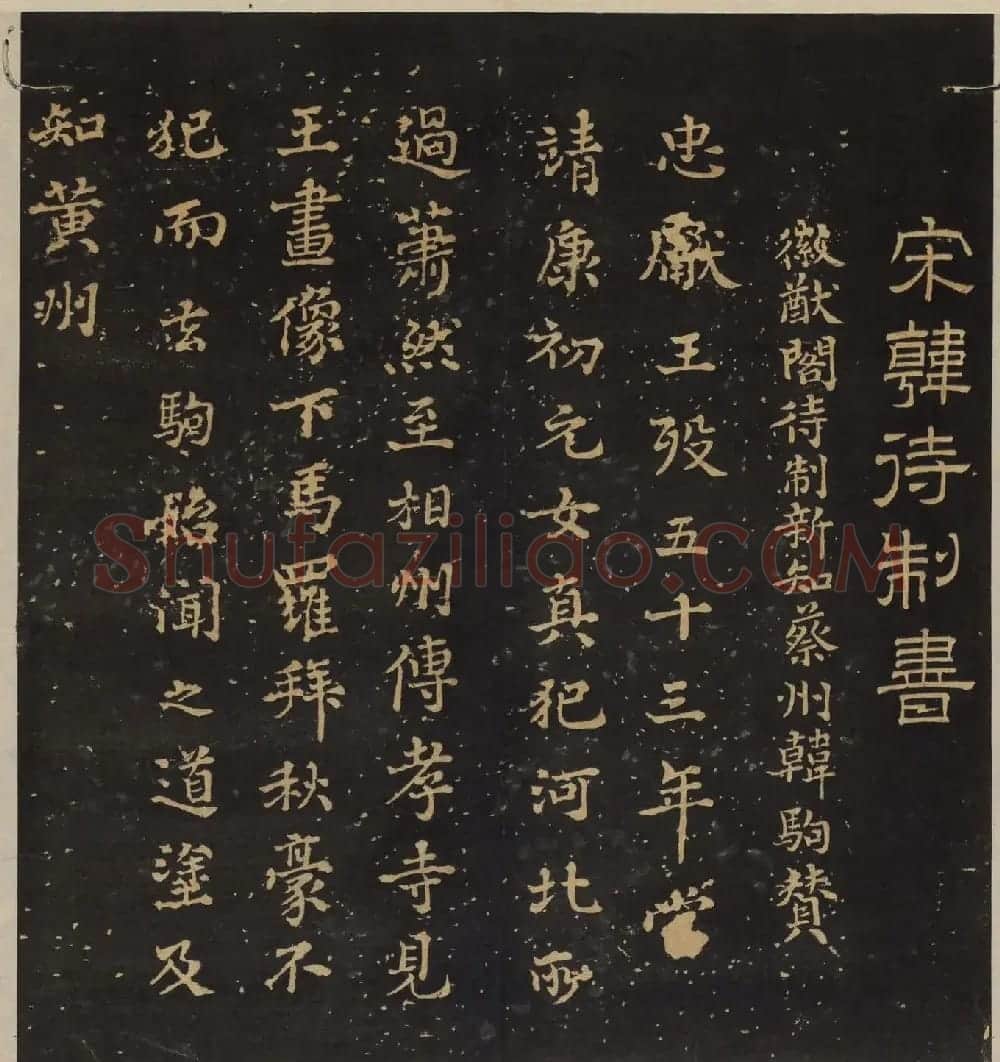 宋韓待制書
徽猷閣待制新知蔡州韓駒贊
忠獻王歿五十三年當
靖康初元女真犯河北所
過蕭然至相州傳孝寺見
王畫像下馬羅拜秋豪不
犯而去駒始聞之道塗及
知黄州
Shufaziliao.COM